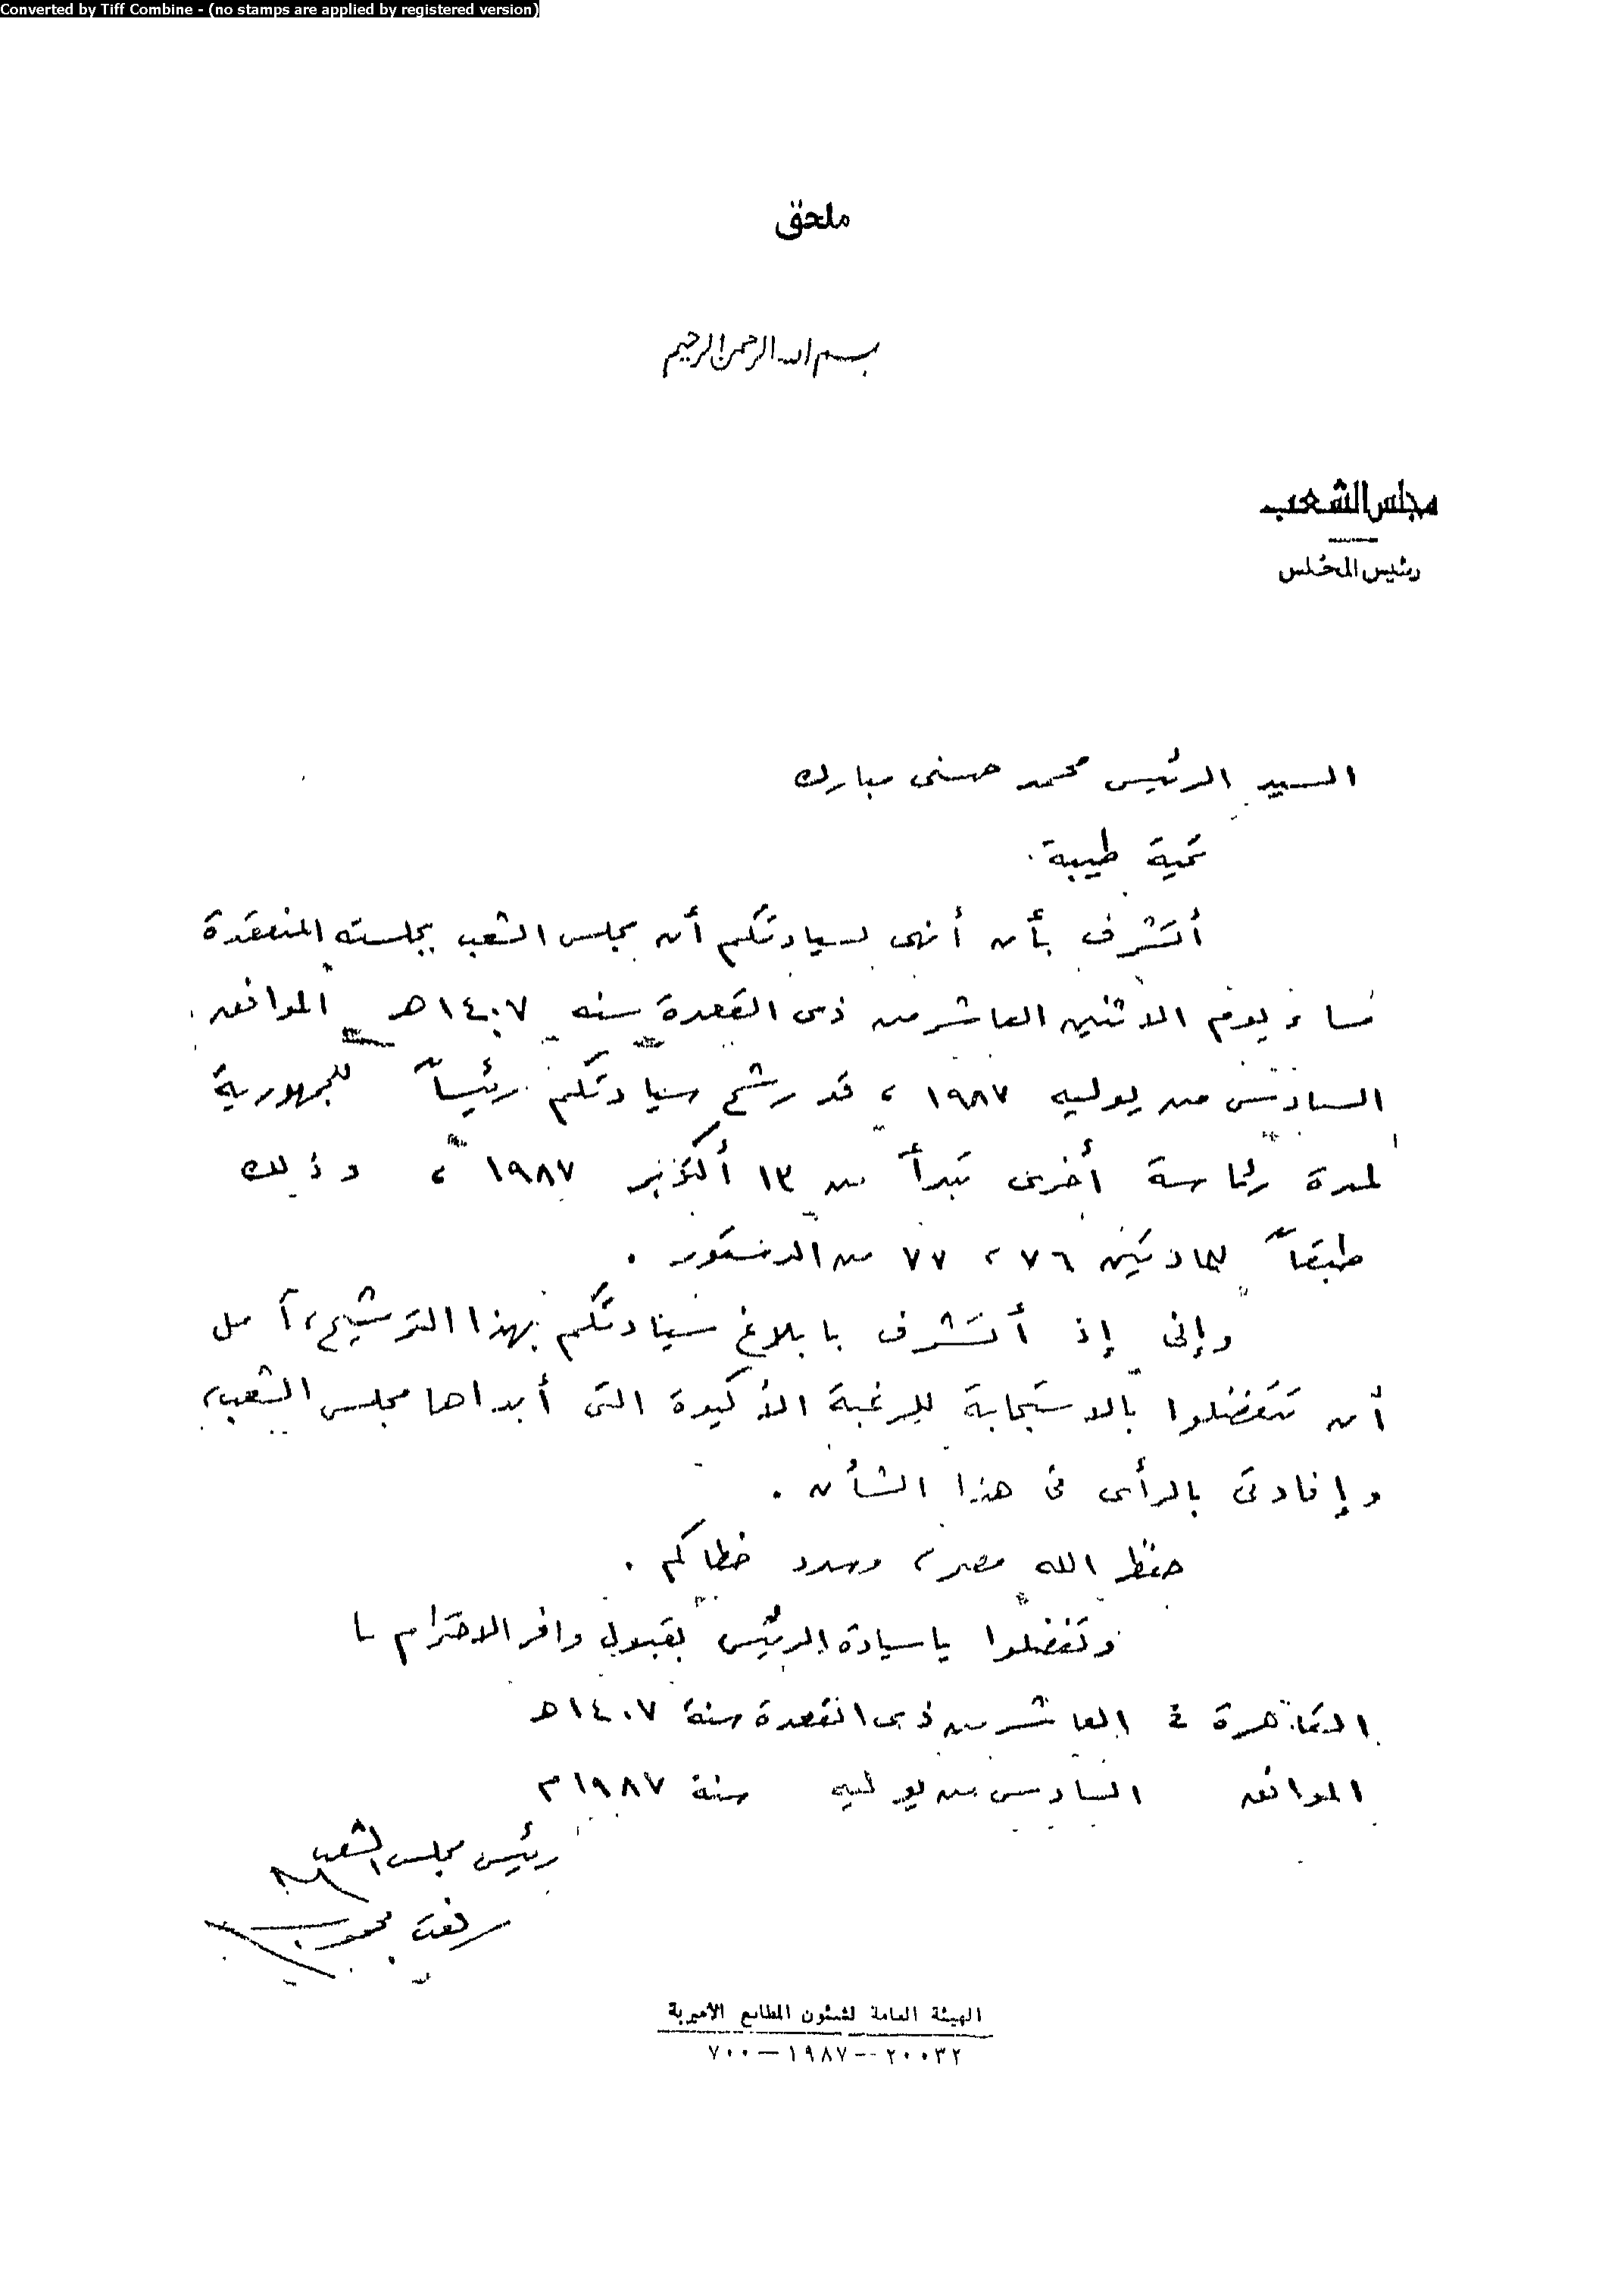 Converted by Tiff Combine - (no stamps are applied by registered version)
ملحق
بسم الله الرحمن الرحيم
مجلس الشعب
رئيس المجلس
السيد الرئيس محمد حسنى مبارك
تحية طيبة.
أتشرف بأن أنهى لسيادتكم أن مجلس الشعب بجلسته المنعقدة
مساء يوم الاثنين العاشر من ذى القعدة سنه ١٤٠٧هـ الموافق
السادس من يوليه ١٩٨٧ ، قد رشح سيادتكم رئيساً للجمهورية
لمدة رئاسة أخرى تبدأ من ١٣ أكتوبر ١٩٨٧ ، وذلك
طبقاً للمادتين ٧٦ ، ٧٧ من الدستور .
وإنى إذ أتشرف بابلاغ سيادتكم بهذا الترشيح ، آمل
أن تتفضلوا بالاستجابة للرغبة الأكيدة التى أبداها مجلس الشعب ،
وإفادتى بالرأى فى هذا الشأن .
حفظ الله مصر ، وسدد خطاكم .
وتفضلوا ياسيادة الرئيس بقبول وافر الاحترام
القاهرة فى العاشر من ذى القعدة سنة ١٤٠٧هـ
الموافق السادس من يوليه سنة ١٩٨٧م
رئيس مجلس الشعب
رفعت محجوب
الهيئة العامة لشئون المطابع الأميرية
٢٠٠٣٢--١٩٨٧—٧٠٠